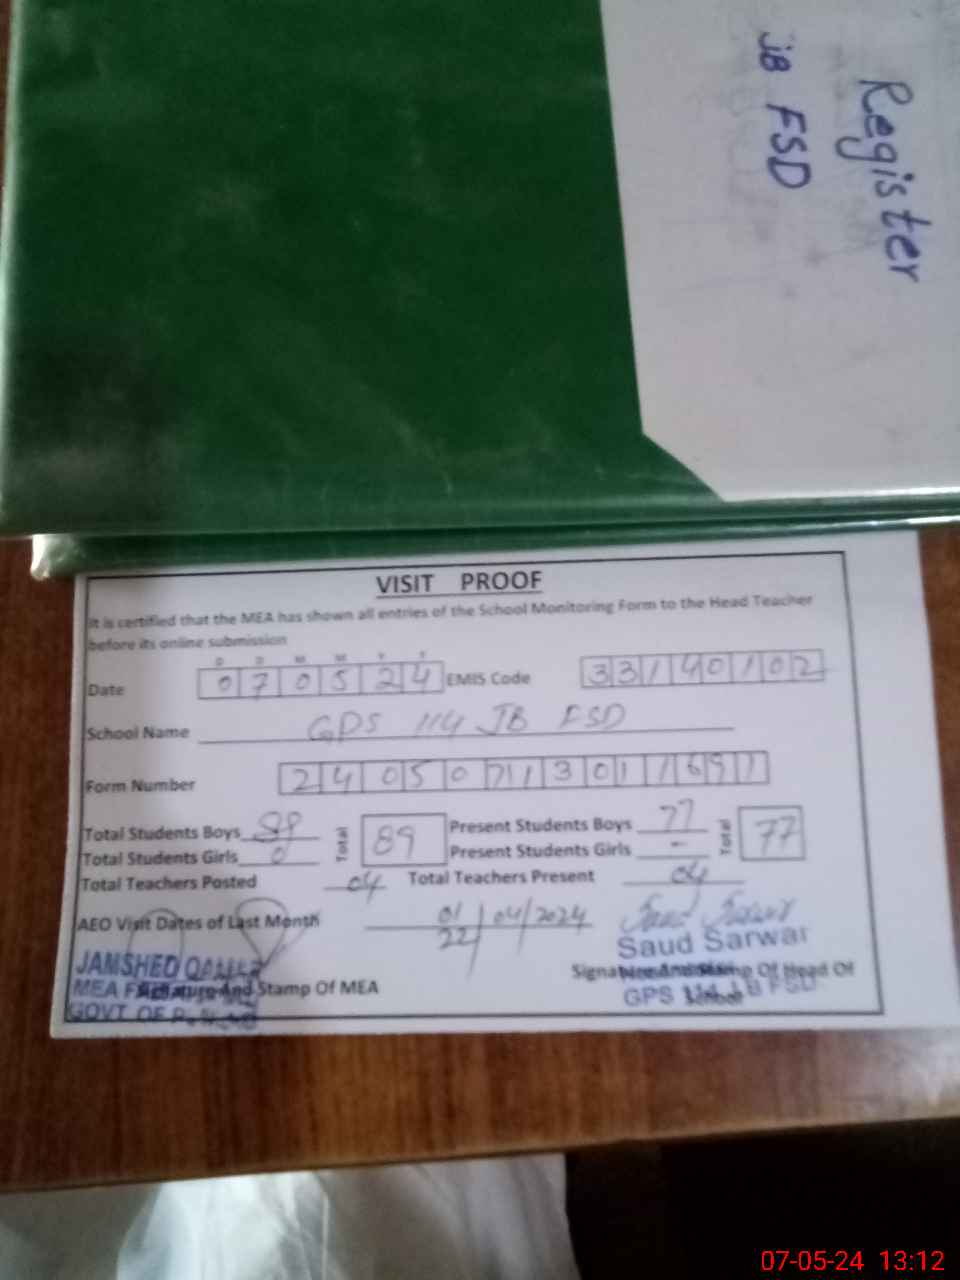 Register
JB FSD
VISIT PROOF
It is certified that the MEA has shown all entries of the School Monitoring Form to the Head Teacher
before its online submission
D D M M Y Y
Date 0 7 0 5 2 4 EMIS Code 3 3 1 4 0 1 0 2
School Name GPS 114 JB FSD
Form Number 2 4 0 5 0 7 1 3 0 1 1 6 9 1
Total Students Boys 89 Total 89 Present Students Boys 77 Total 77
Total Students Girls 0 Present Students Girls -
Total Teachers Posted 04 Total Teachers Present 04
AEO Visit Dates of Last Month 01/04/2024
22
Saud Sarwar
JAMSHED QAMAR
Signature And Stamp Of MEA Signature And Stamp Of Head Of
School
MEA
GPS 114 JB FSD
GOVT. OF
07-05-24 13:12